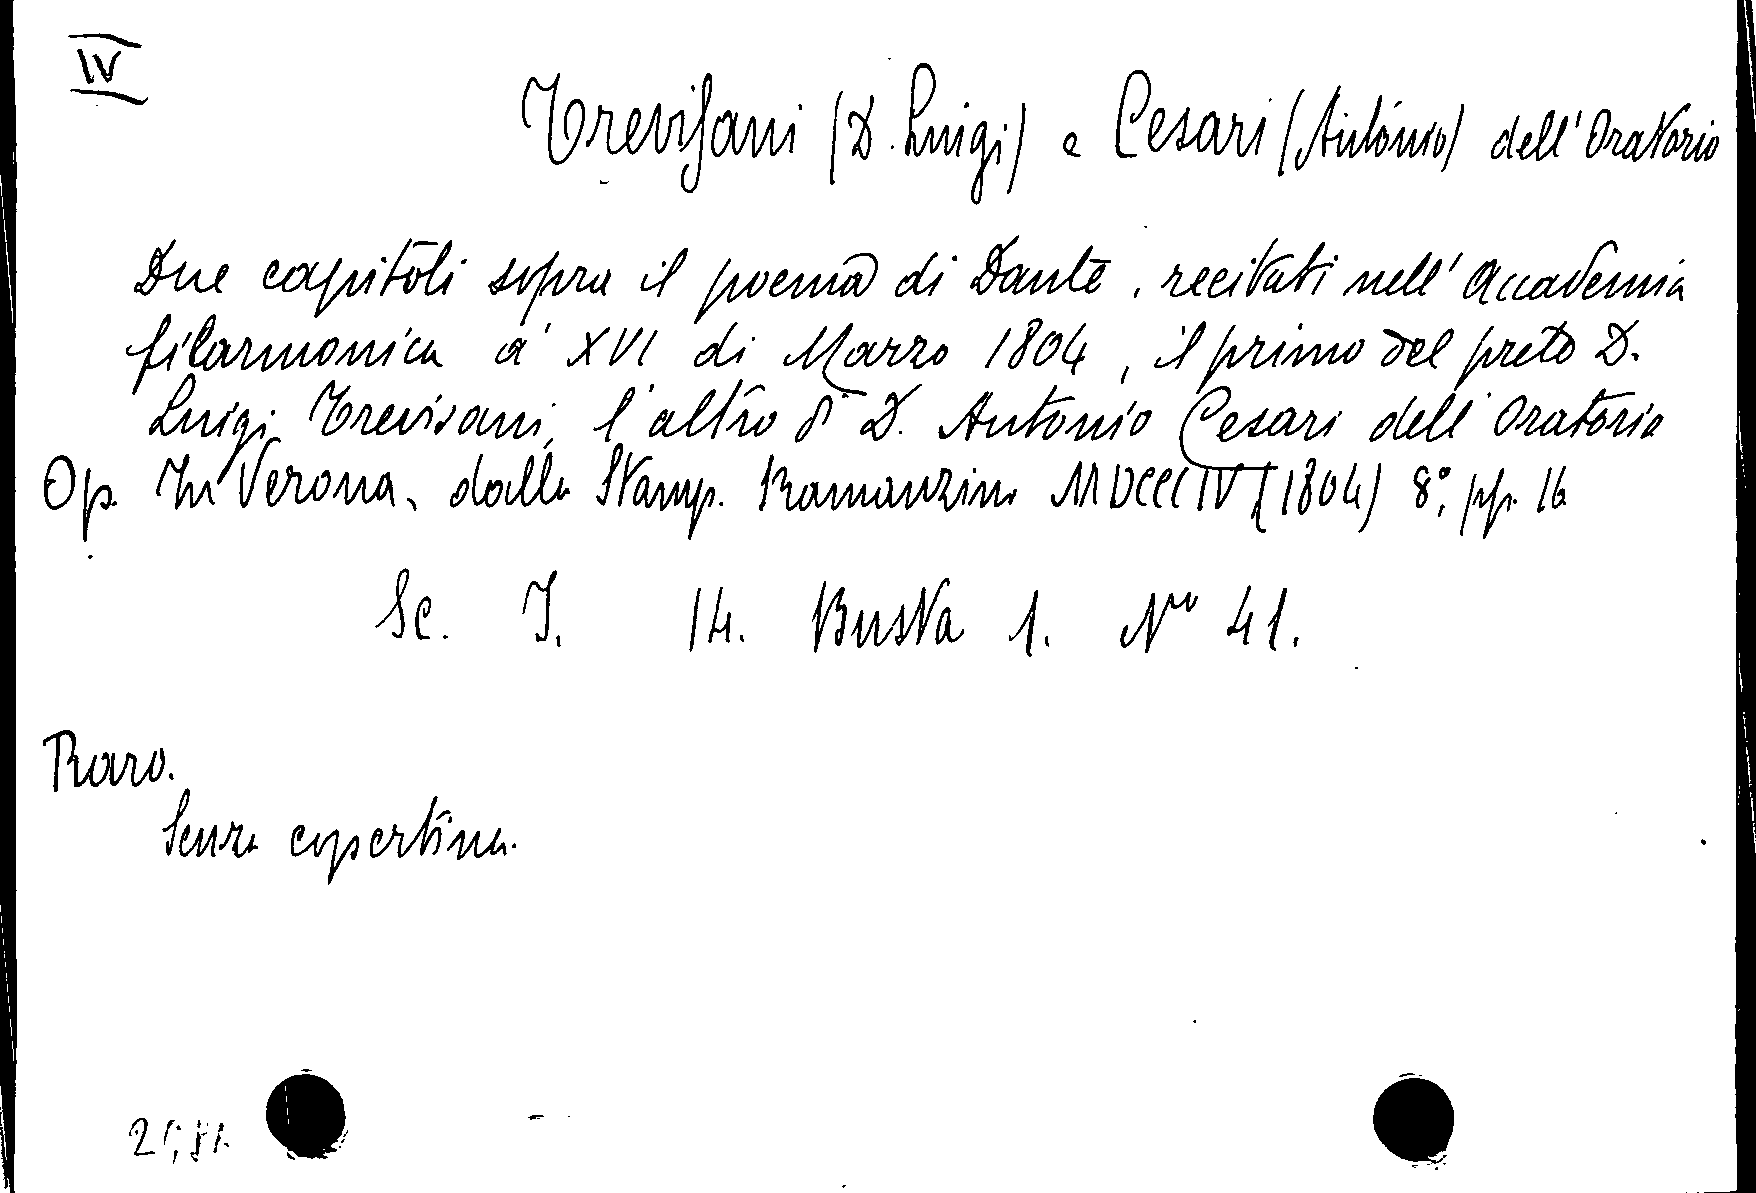 IV
Trevisani (D. Luigi) e Cesari (Antonio) dell'Oratorio
Due capitoli sopra il poema di Dante, recitati nell'Accademia
filarmonica a' XVI di Marzo 1804, il primo del prete D.
Luigi Trevisani, l'altro di D. Antonio Cesari dell'Oratorio
Op. In Verona, dalla Stamp. Ramanzini MDCCCIV (1804) 8°, pp. 16
Sc. I. 14. Busta 1. No 41.
Raro.
Senza copertina.